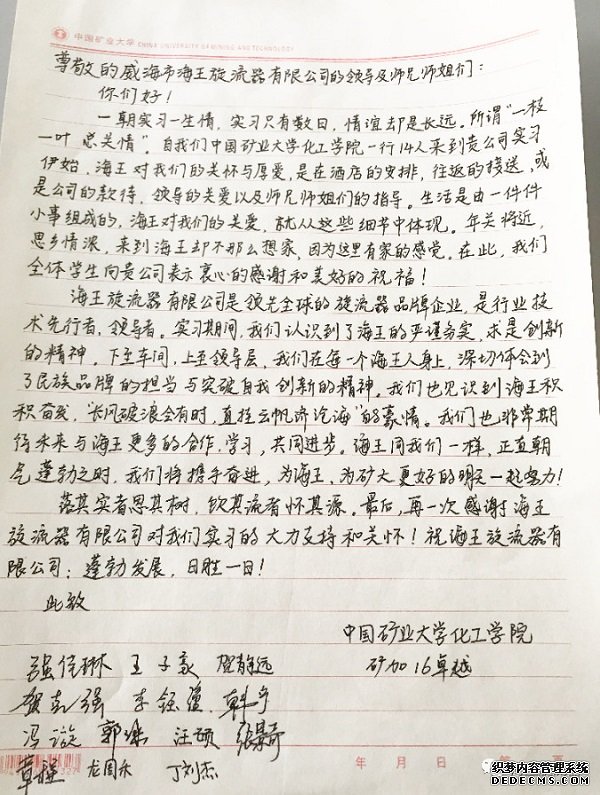 中国矿业大学 CHINA UNIVERSITY OF MINING AND TECHNOLOGY
尊敬的威海市海王旋流器有限公司的领导及师兄师姐们:
你们好!
一朝实习一生情,实习只有数日,情谊却是长远。所谓“一枝
一叶总关情”,自我们中国矿业大学化工学院一行14人来到贵公司实习
伊始,海王对我们的关怀与厚爱,是在酒店的安排,往返的接送,或
是公司的款待,领导的关爱以及师兄师姐们的指导。生活是由一件件
小事组成的,海王对我们的关爱,就从这些细节中体现。年关将近,
思乡情浓,来到海王却不那么想家,因为这里有家的感觉。在此,我们
全体学生向贵公司表示衷心的感谢和美好的祝福!
海王旋流器有限公司是领先全球的旋流器品牌企业,是行业技
术先行者,领导者。实习期间,我们认识到了海王的严谨务实,求是创新
的精神。下至车间,上至领导层,我们在每一个海王人身上,深切体会到
了民族品牌的担当与突破自我创新的精神。我们也见识到海王积
积奋发,“长风破浪会有时,直挂云帆济沧海”的豪情。我们也非常期
待未来与海王更多的合作,学习,共同进步。海王同我们一样,正直朝
气蓬勃之时,我们将携手奋进,为海王,为矿大更好的明天一起努力!
落其实者思其树,饮其流者怀其源。最后,再一次感谢海王
旋流器有限公司对我们实习的大力支持和关怀!祝海王旋流器有
限公司:蓬勃发展,日胜一日!
此致
中国矿业大学化工学院
矿加16卓越
王子豪 贺静远
李钰
冯 郭 汪颖 张景奇
龙国禾 丁刘杰
年 月 日
织梦内容管理系统
DEDECMS.COM